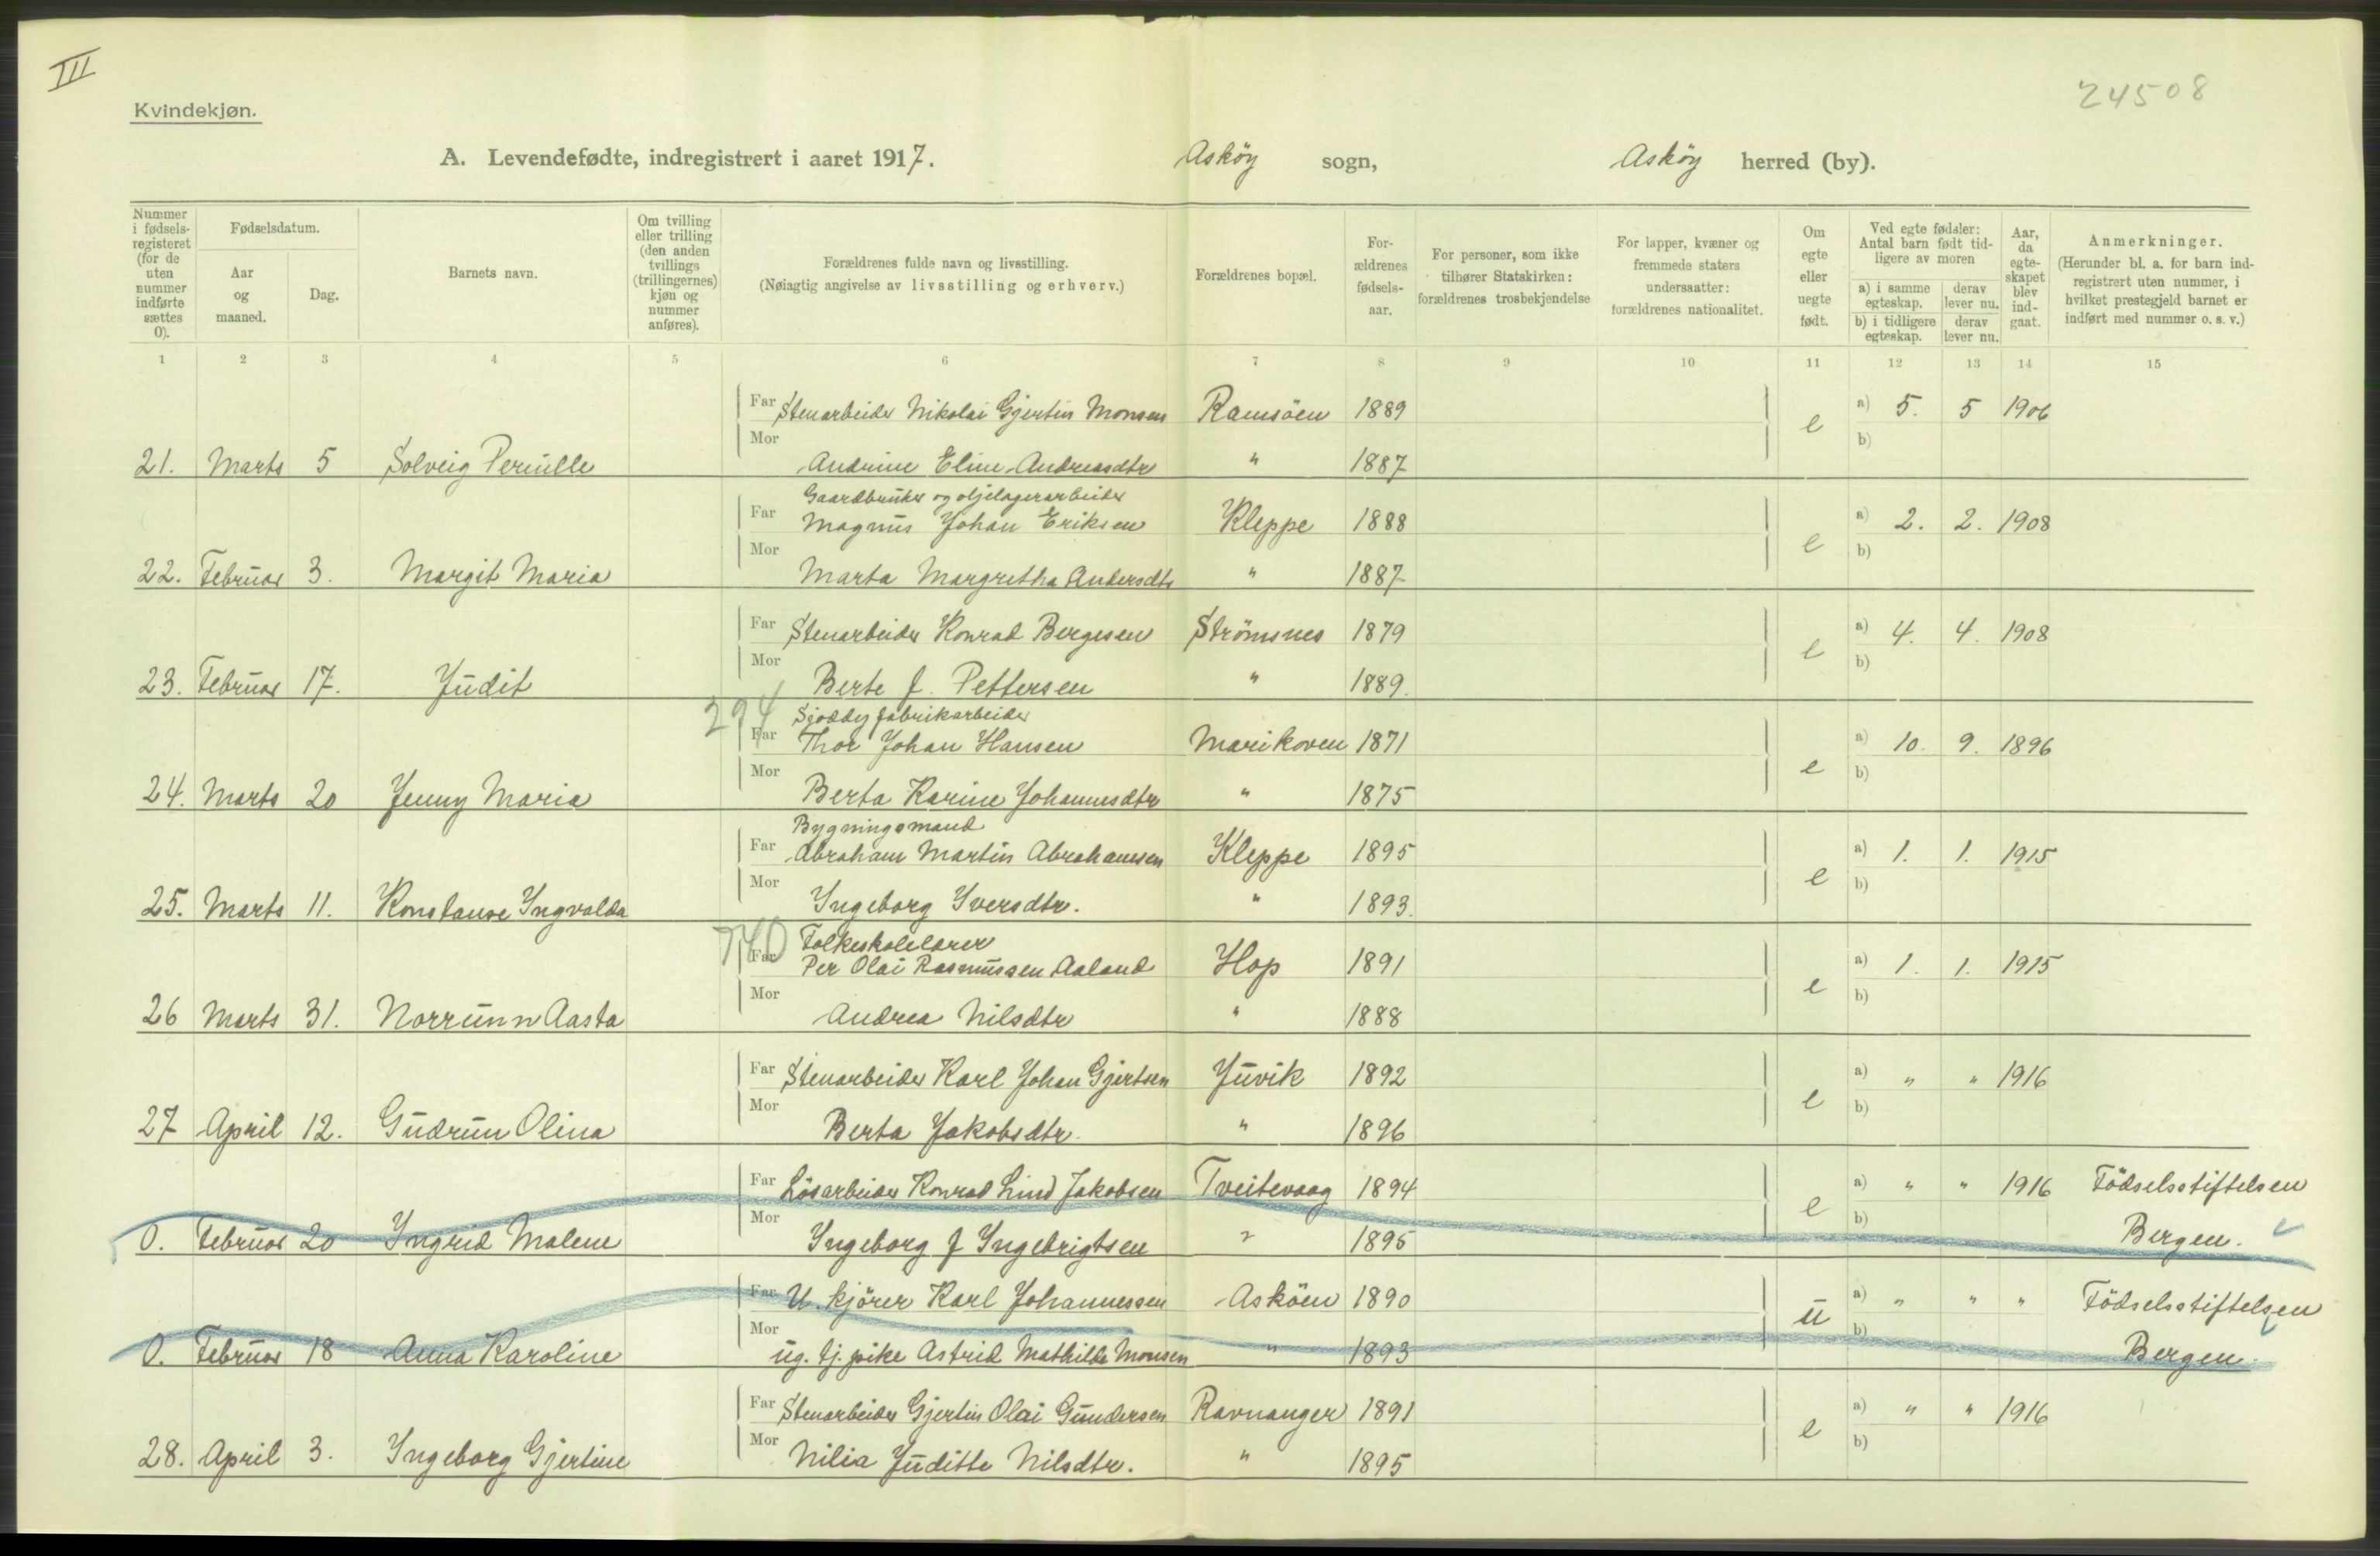 III
24508
Kvindekjøn.
A. Levendefødte, indregistrert i aaret 1917. Asköy sogn, Asköy herred (by).
Nummer i fødsels-registeret (for de uten nummer indførte sættes 0).
Fødselsdatum.
Aar og maaned.
Dag.
Barnets navn.
Om tvilling eller trilling (den anden tvillings (trillingernes) kjøn og nummer anføres).
Forældrenes fulde navn og livsstilling.
(Nøiagtig angivelse av livsstilling og erhverv.)
Forældrenes bopæl.
For-ældrenes fødsels-aar.
For personer, som ikke tilhører Statskirken: forældrenes trosbekjendelse
For lapper, kvæner og fremmede staters undersaatter: forældrenes nationalitet.
Om egte eller uegte født.
Ved egte fødsler: Antal barn født tid-ligere av moren
a) i samme egteskap. derav lever nu.
b) i tidligere egteskap. derav lever nu.
Aar, da egte-skapet blev ind-gaat.
Anmerkninger.
(Herunder bl. a. for barn ind-registrert uten nummer, i hvilket prestegjeld barnet er indført med nummer o. s. v.)
1 2 3 4 5 6 7 8 9 10 11 12 13 14 15
Far Stenarbeider Nikolai Gjertin Monsen Ramsöen 1889 e a) 5. 5 1906
Mor b)
21. Marts 5 Solveig Pernille Andrine Eline Andreasdtr " 1887
Gaardbruker og oljelagerarbeider
Far Magnus Johan Eriksen Kleppe 1888 e a) 2. 2. 1908
Mor b)
22. Februar 3. Margit Maria Marta Margretha Andersdtr " 1887
Far Stenarbeider Konrad Bergesen Strömsnes 1879 e a) 4. 4. 1908
Mor b)
23. Februar 17. Judit Berte J. Pettersen " 1889.
294 Sjoddy fabrikarbeider
Far Thor Johan Hansen Marikoven 1871 e a) 10. 9. 1896
Mor b)
24. Marts 20 Jenny Maria Berta Karine Johannesdtr " 1875
Bygningsmand
Far Abraham Martin Abrahamsen Kleppe 1895 e a) 1. 1. 1915
Mor b)
25. Marts 11. Konstanse Ingvalda Ingeborg Iversdtr. " 1893.
740 Folkeskolelærer
Far Per Olai Rasmussen Aaland Hop 1891 e a) 1. 1. 1915
Mor b)
26 Marts 31. Norrunn Aasta Andrea Nilsdtr " 1888
Far Stenarbeider Karl Johan Gjertsen Juvik 1892 e a) " " 1916
Mor b)
27 April 12. Gudrun Olina Berta Jakobsdtr. " 1896
Far Lösarbeider Konrad Lind Jakobsen Tveitevaag 1894 e a) " " 1916 Födselsstiftelsen
Mor b)
0. Februar 20 Ingrid Malene Ingeborg J Ingebrigtsen " 1895 Bergen.
Far U. kjörer Karl Johannessen Asköen 1890 u a) " " " Födselsstiftelsen
Mor b)
0. Februar 18 Anna Karoline ug. tj. pike Astrid Mathilde Monsen " 1893 Bergen.
Far Stenarbeider Gjertin Olai Gundersen Ravnanger 1891 e a) " " 1916
Mor b)
28. April 3. Ingeborg Gjertine Nilia Juditte Nilsdtr. " 1895